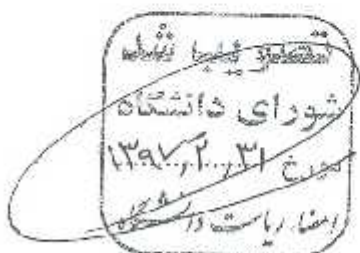 تصویب شد
شورای دانشگاه
مورخ ۱۳۹۷/۲/۳۱
امضا ریاست دانشگاه